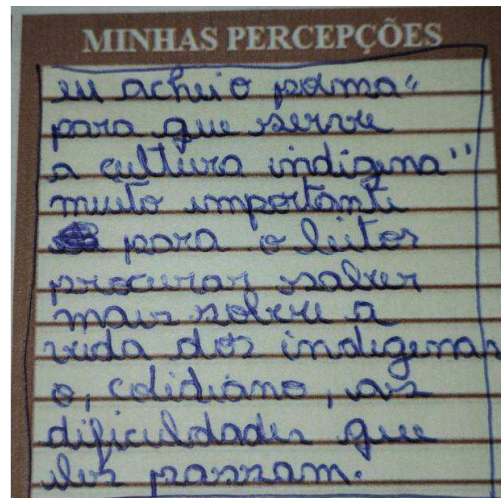 MINHAS PERCEPÇÕES
eu achei o poema "
para que serve
a cultura indígena"
muito importante
para o leitor
procurar saber
mais sobre a
vida dos indigenas
o, cotidiano, as
dificuldades que
eles passam.